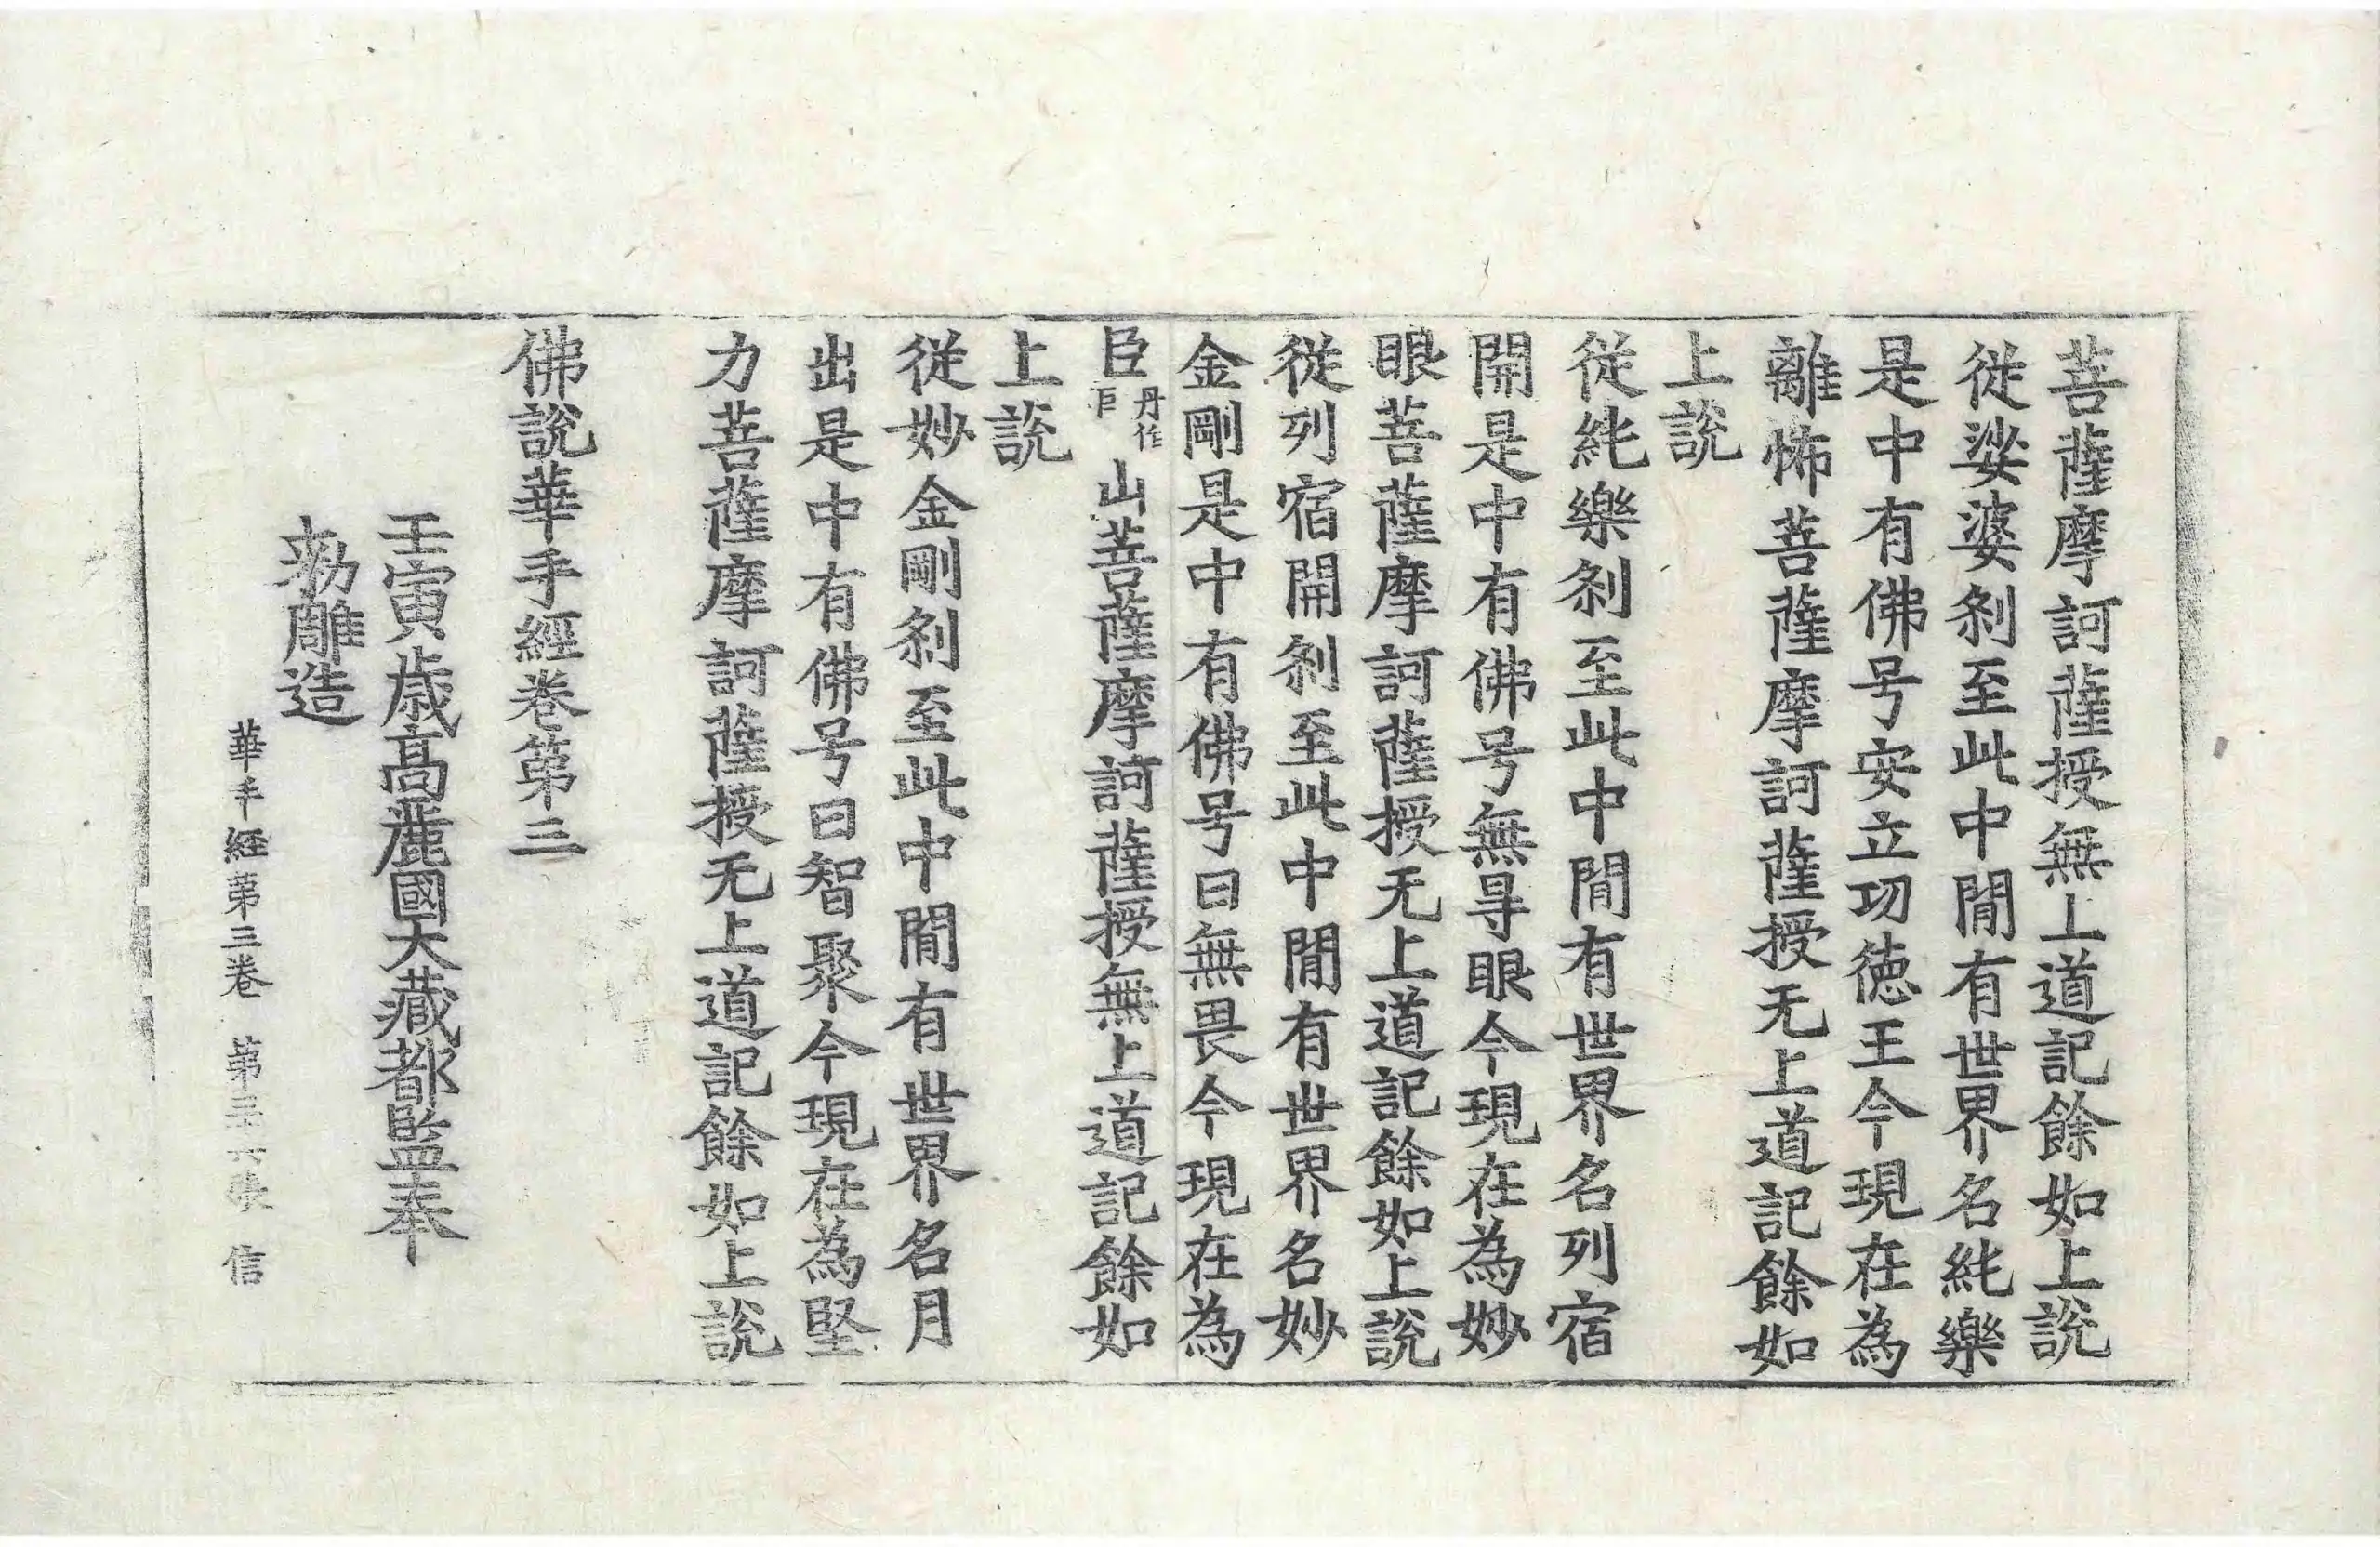 菩薩摩訶薩授無上道記餘如上說
從娑婆刹至此中閒有世界名純樂
是中有佛号安立功德王今現在為
離怖菩薩摩訶薩授无上道記餘如
上說
從純樂刹至此中閒有世界名列宿
開是中有佛号無㝵眼今現在為妙
眼菩薩摩訶薩授无上道記餘如上說
從列宿開刹至此中閒有世界名妙
金剛是中有佛号曰無畏今現在為
臣丹作巨山菩薩摩訶薩授無上道記餘如
上說
從妙金剛刹至此中閒有世界名月
出是中有佛号曰智聚今現在為堅
力菩薩摩訶薩授无上道記餘如上說
佛說華手經卷第三
壬寅歳高麗國大藏都監奉
勑雕造
華手経第三卷 第三十六張 信